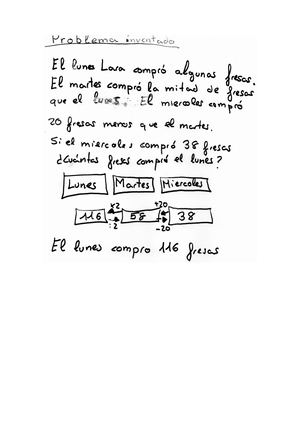 Problema inventado
El lunes Lara compró algunas fresas.
El martes compró la mitad de fresas
que el lunes. El miercoles compró
20 fresas menos que el martes.
Si el miercoles compró 38 fresas
¿cuántas fresas compró el lunes?
Lunes Martes Miercoles
x2 +20
116 58 38
:2 -20
El lunes compro 116 fresas